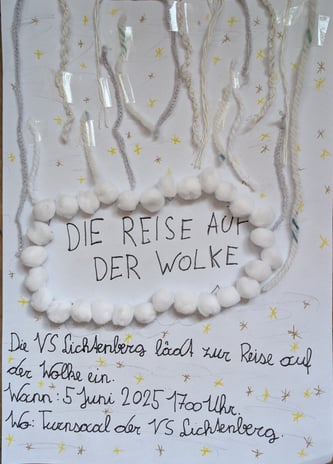 DIE REISE AUF
DER WOLKE
Die VS Lichtenberg lädt zur Reise auf
der Wolke ein.
Wann: 5 Juni 2025 1700 Uhr.
Wo: Turnsaal der VS Lichtenberg.